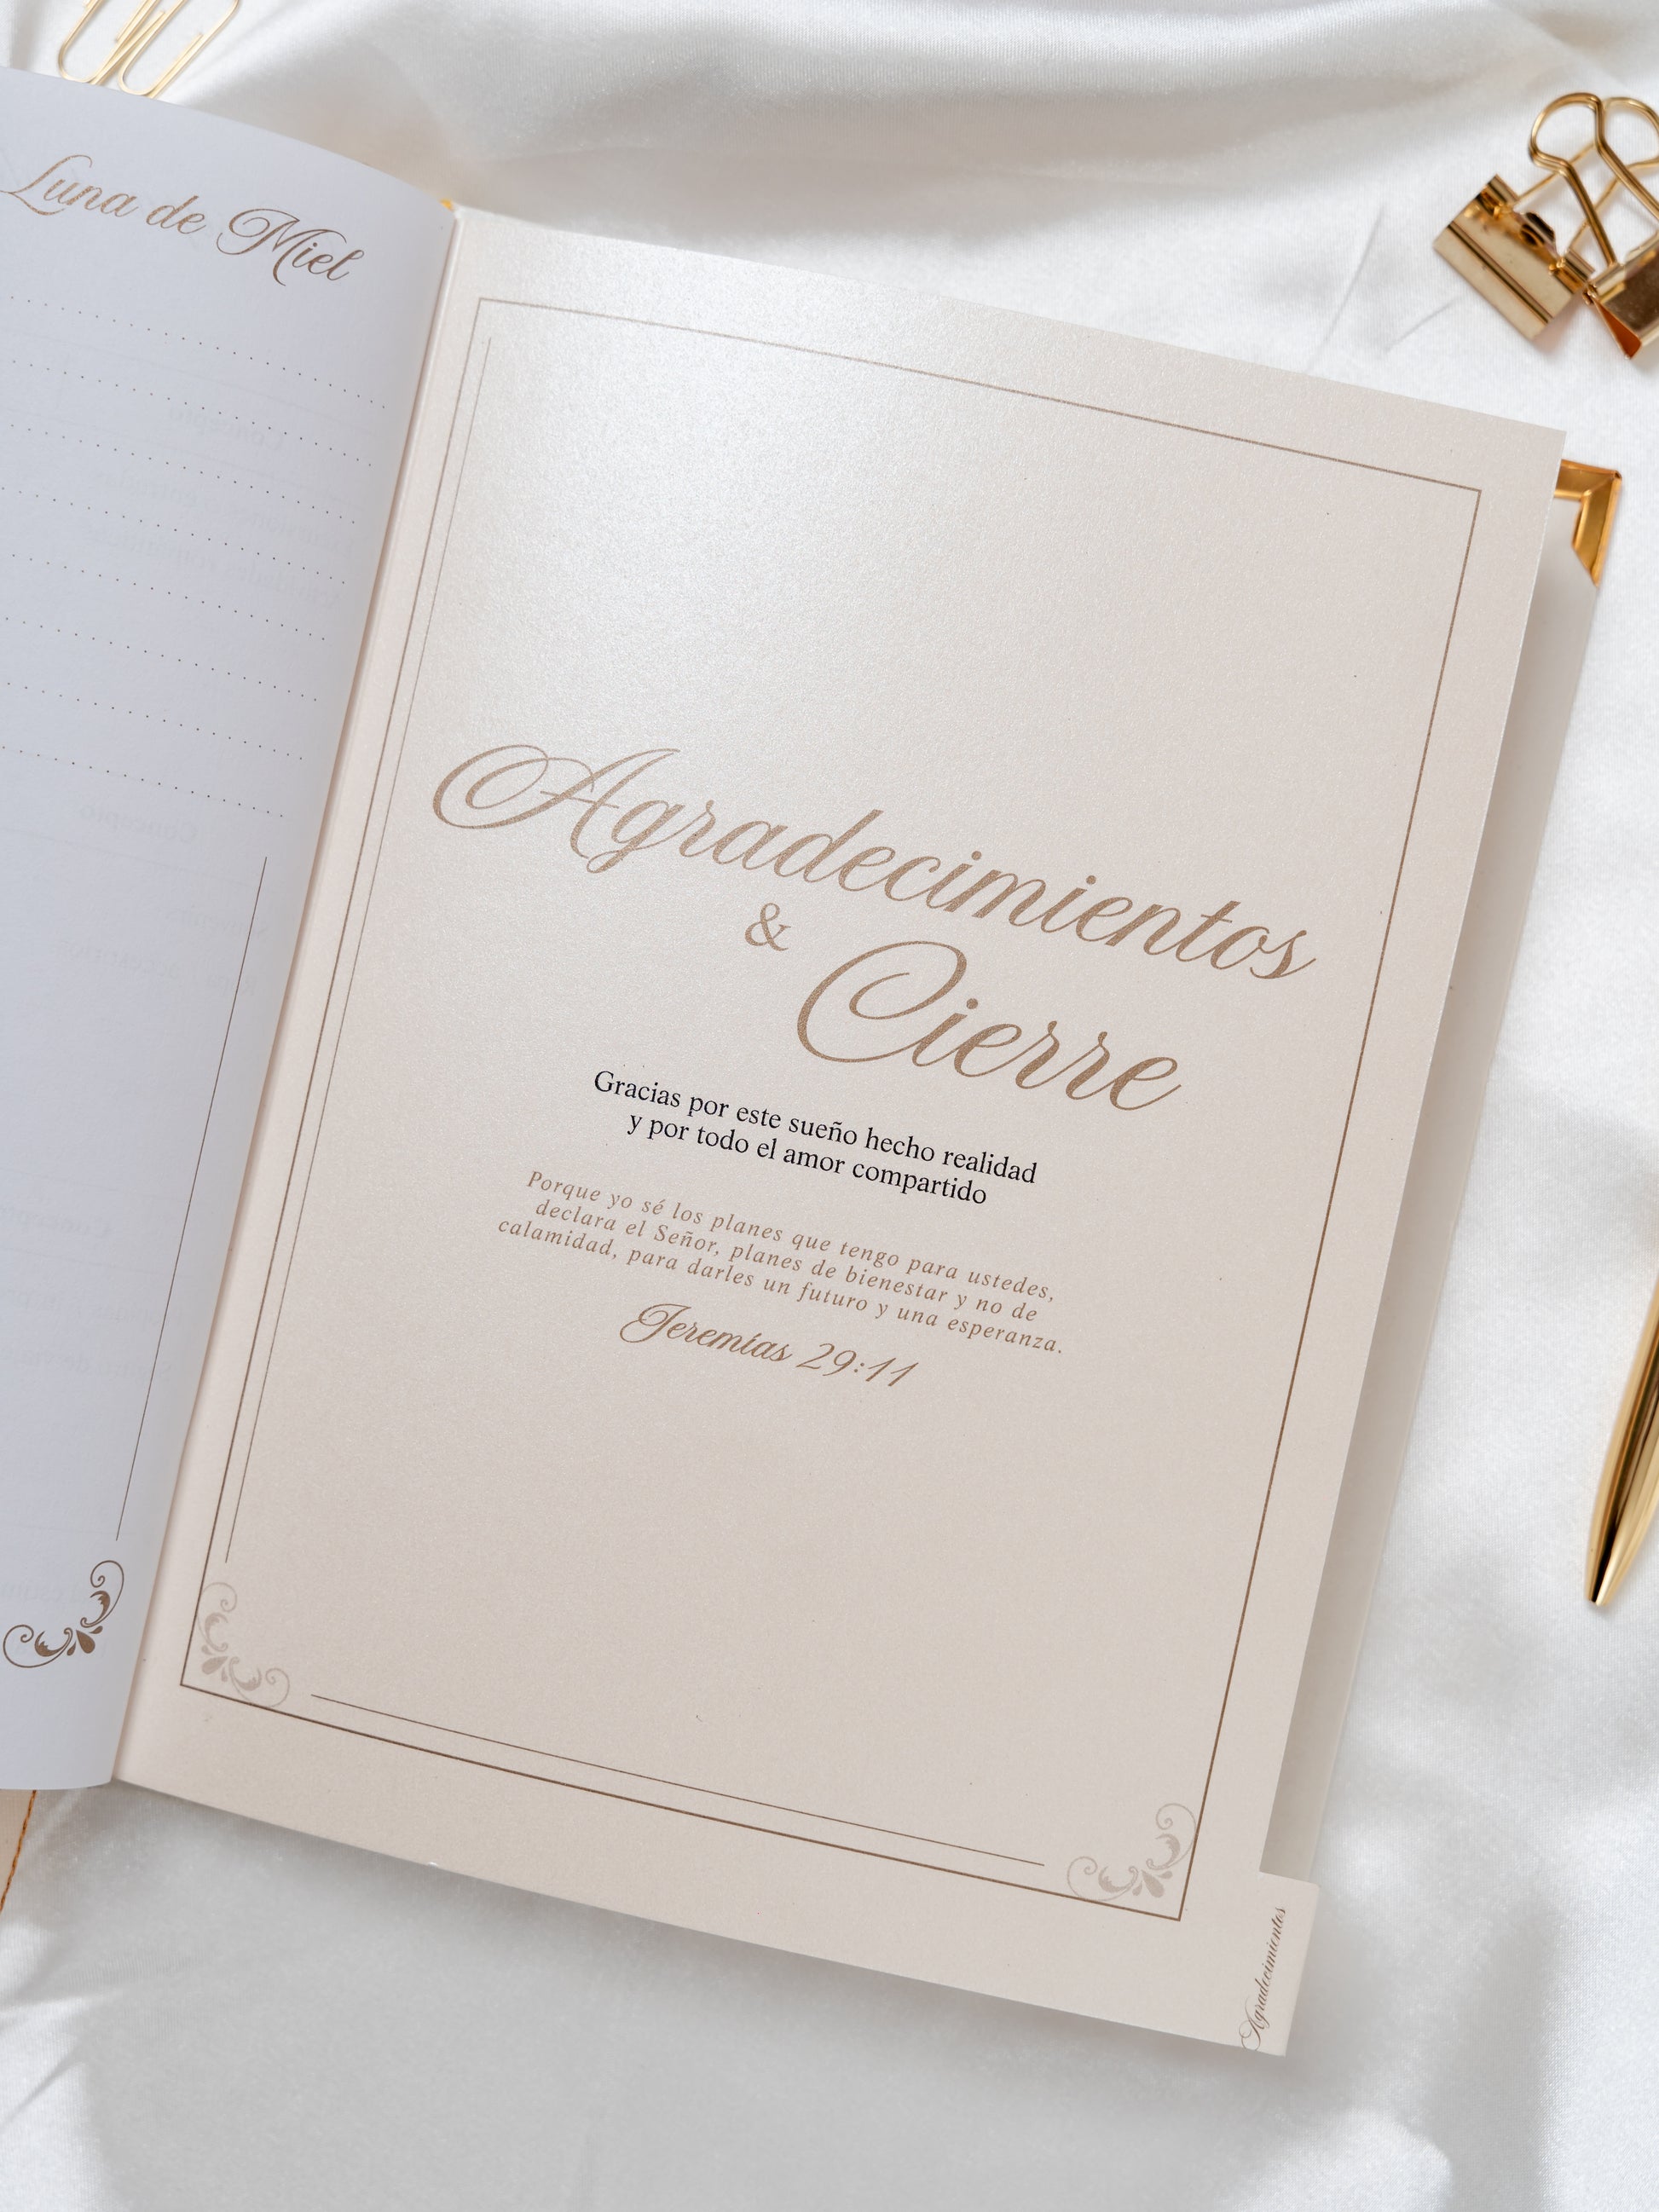 Luna de Miel
Agradecimientos
&
Cierre
Gracias por este sueño hecho realidad
y por todo el amor compartido
Porque yo sé los planes que tengo para ustedes,
declara el Señor, planes de bienestar y no de
calamidad, para darles un futuro y una esperanza.
Jeremías 29:11
Agradecimientos